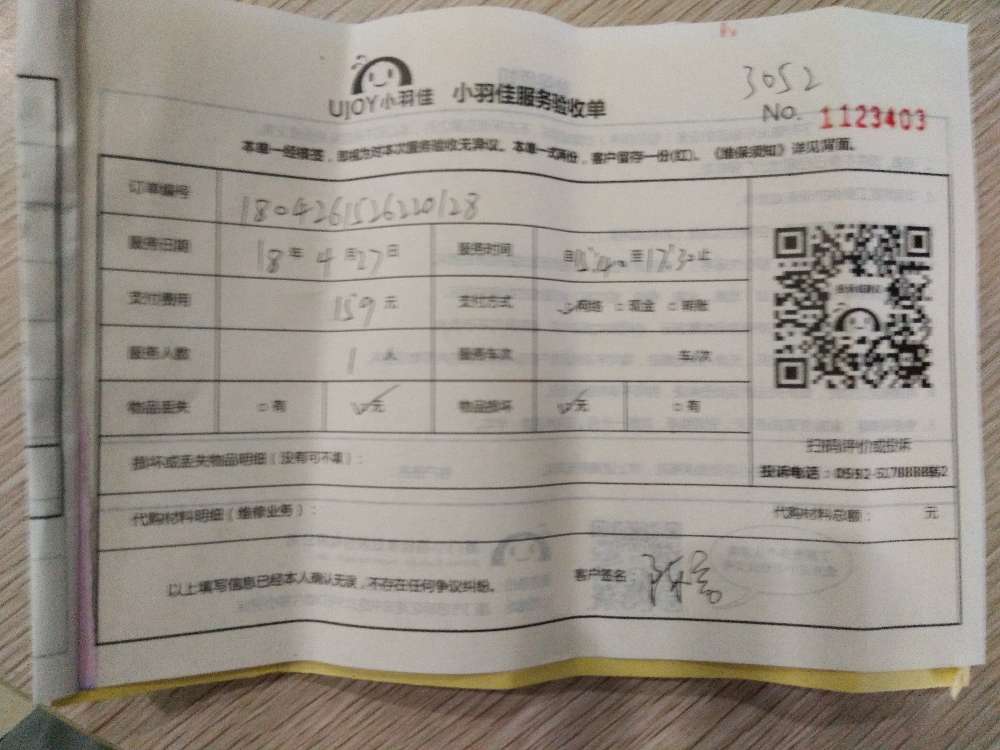 3052
UJOY小羽佳 小羽佳服务验收单
No. 1123403
本单一经签签，即视为对本次服务验收无异议。本单一式两份，客户留存一份(红)。《维保须知》详见背面。
订单编号 1804261526220128
服务日期 18年4月27日 服务时间 自15:40至17:30止
支付费用 159元 支付方式 网络 现金 转账
服务人数 1人 服务车次 车/次
物品丢失 有 无 物品损坏 无 有
损坏或丢失物品明细（没有可不填）：
扫码评价或投诉
投诉电话：0592-
代购材料明细（维修业务）： 代购材料总额： 元
以上填写信息已经本人确认无误，不存在任何争议纠纷。 客户签名